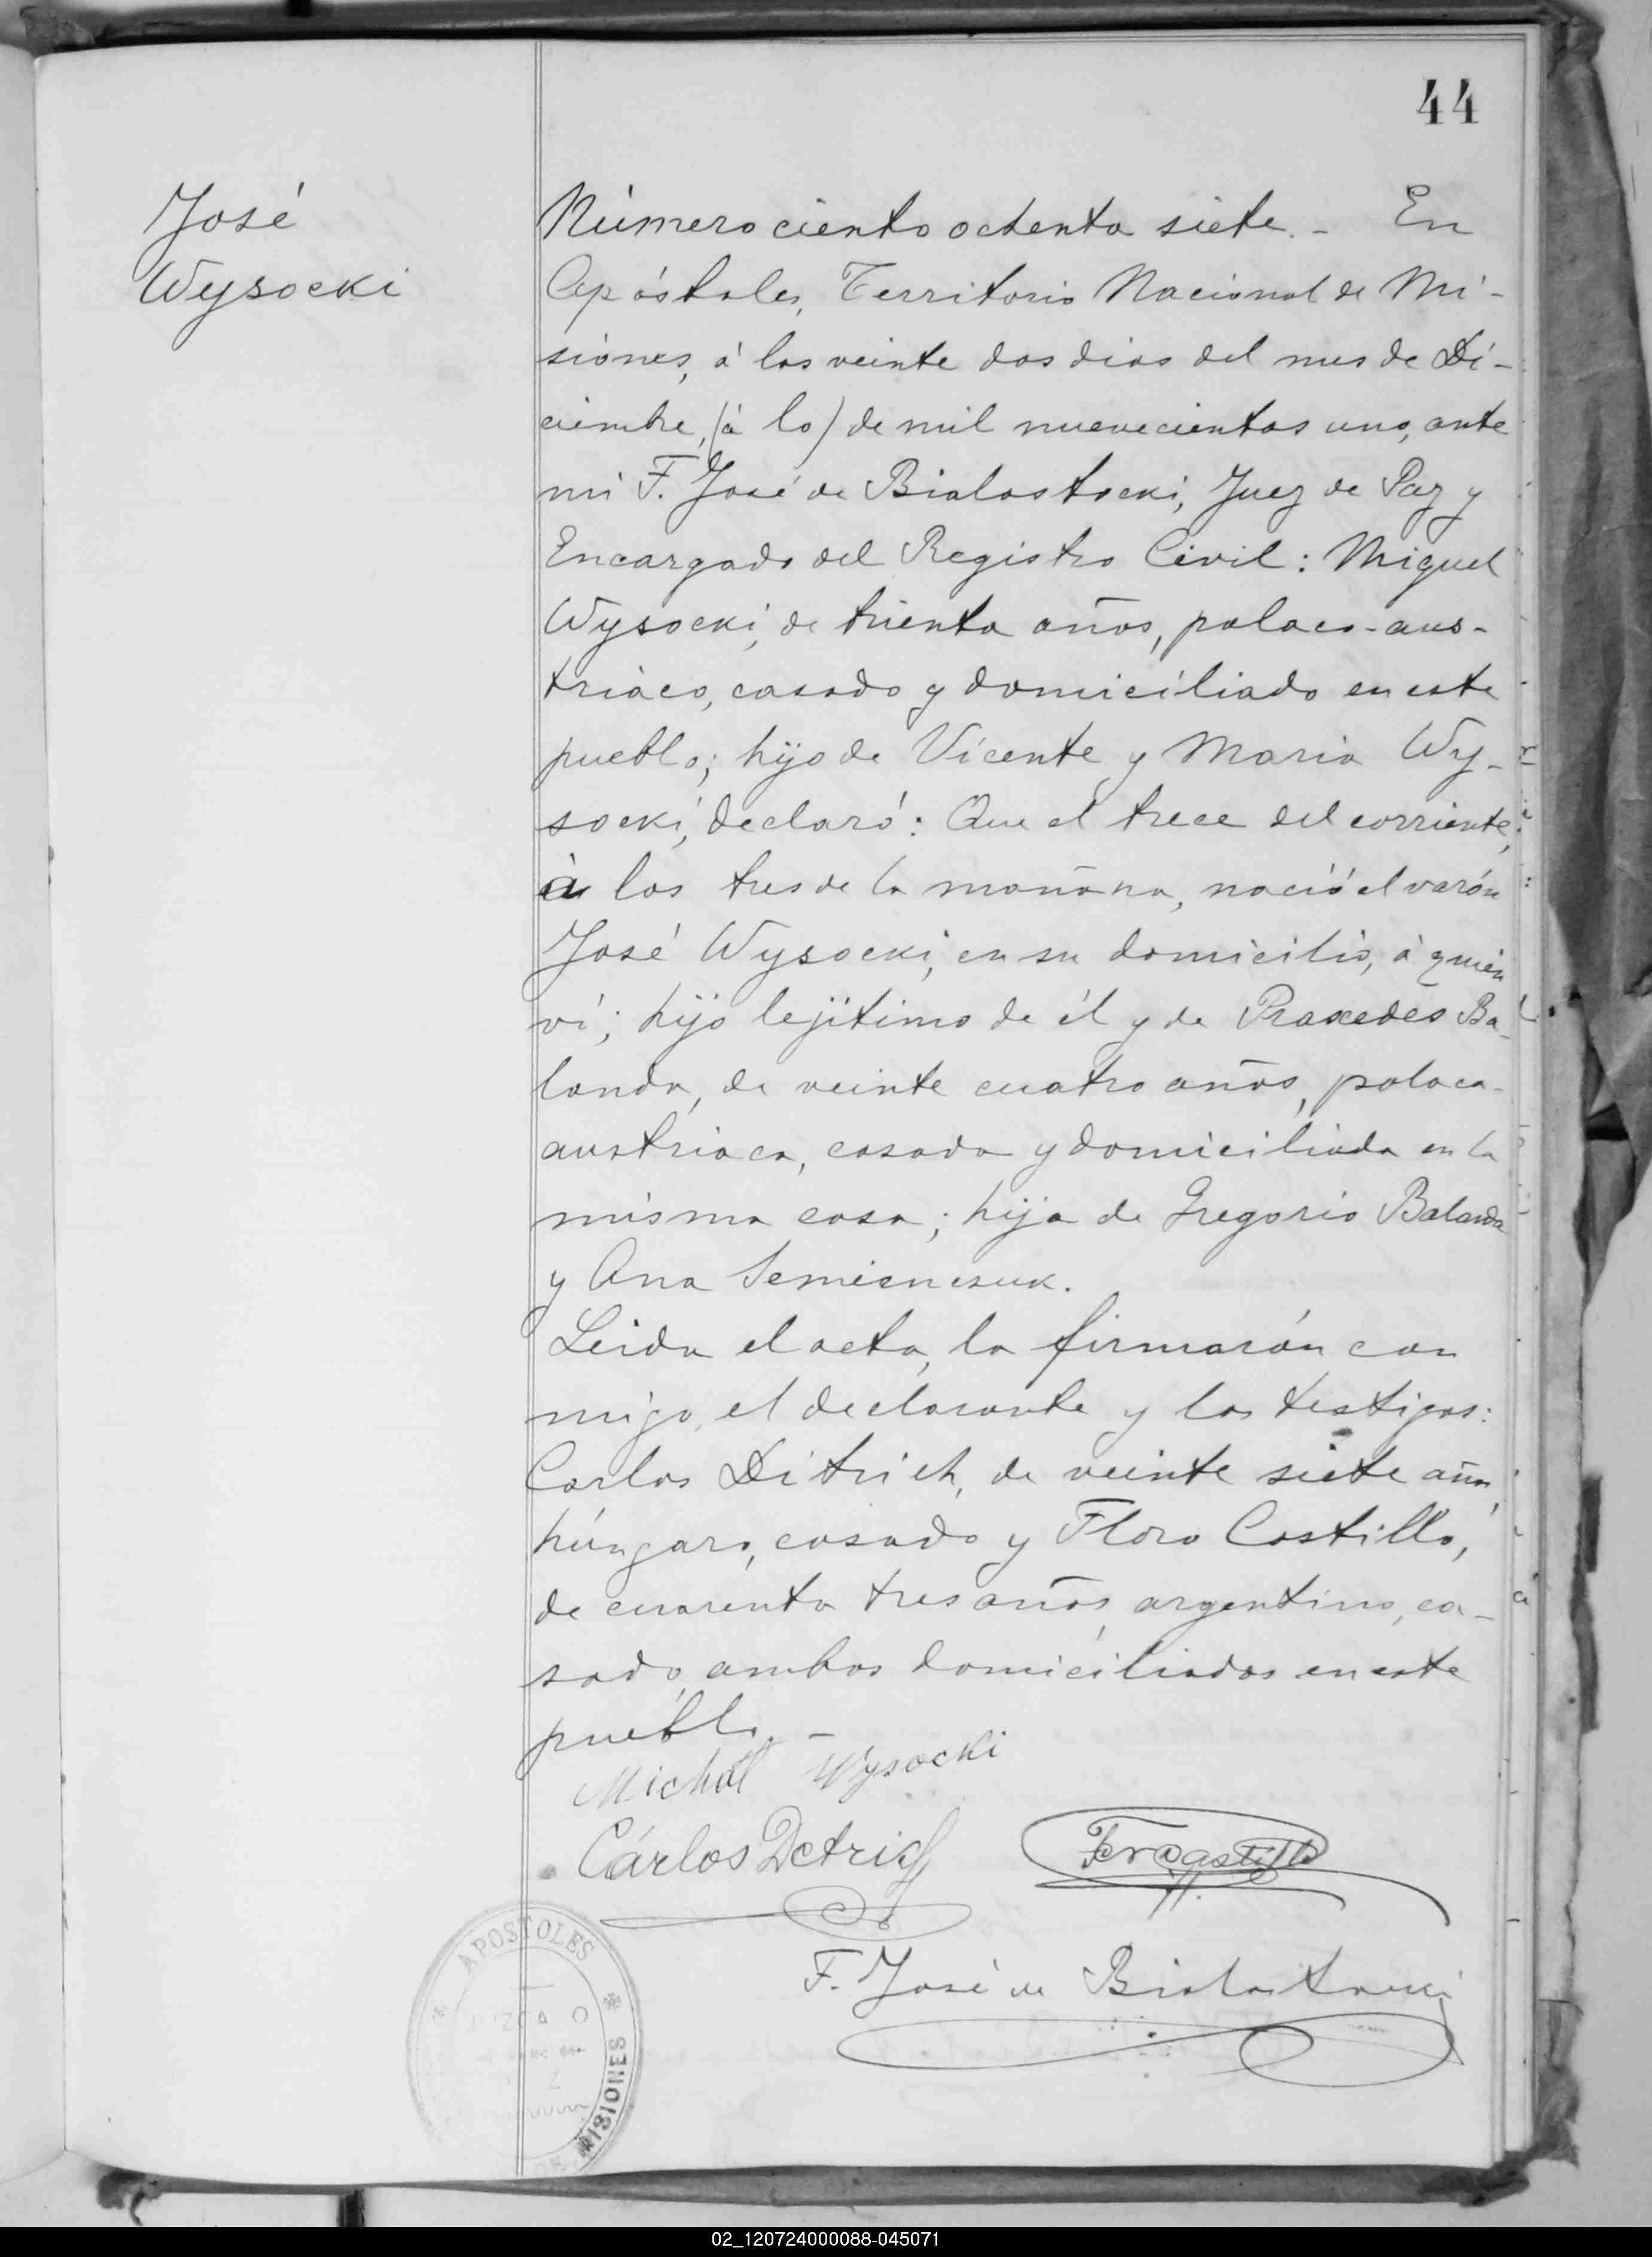 44
José
Wysocki
Número ciento ochenta siete. - En
Apóstoles, Territorio Nacional de Mi-
siones, á los veinte dos dias del mes de Di-
ciembre, (á lo) de mil nuevecientos uno, ante
mi F. José de Bialostocki, Juez de Paz y
Encargado del Registro Civil: Miguel
Wysocki, de trienta años, polaco-aus-
triaco, casado y domiciliado en este
pueblo; hijo de Vicente y Maria Wy-
socki, declaró: Que el trece del corriente,
á las tres de la mañana, nació el varón
José Wysocki, en su domicilio, á quien
ví; hijo lejitimo de él y de Praxedes Ba-
landa, de veinte cuatro años, polaca-
austriaca, casada y domiciliada en la
misma casa; hija de Gregorio Balanda
y Ana Semiencsuk.
Leida el acta, la firmarón con
migo, el declarante y los testigos:
Carlos Ditrich, de veinte siete años,
húngaro, casado y Floro Castillo,
de cuarenta tres años, argentino, ca-
sado, ambos domiciliados en este
pueblo. -
Michał Wysocki
Cárlos Detrich
F. José de Bialostocki
APOSTOLES
MISIONES
02_120724000088-045071